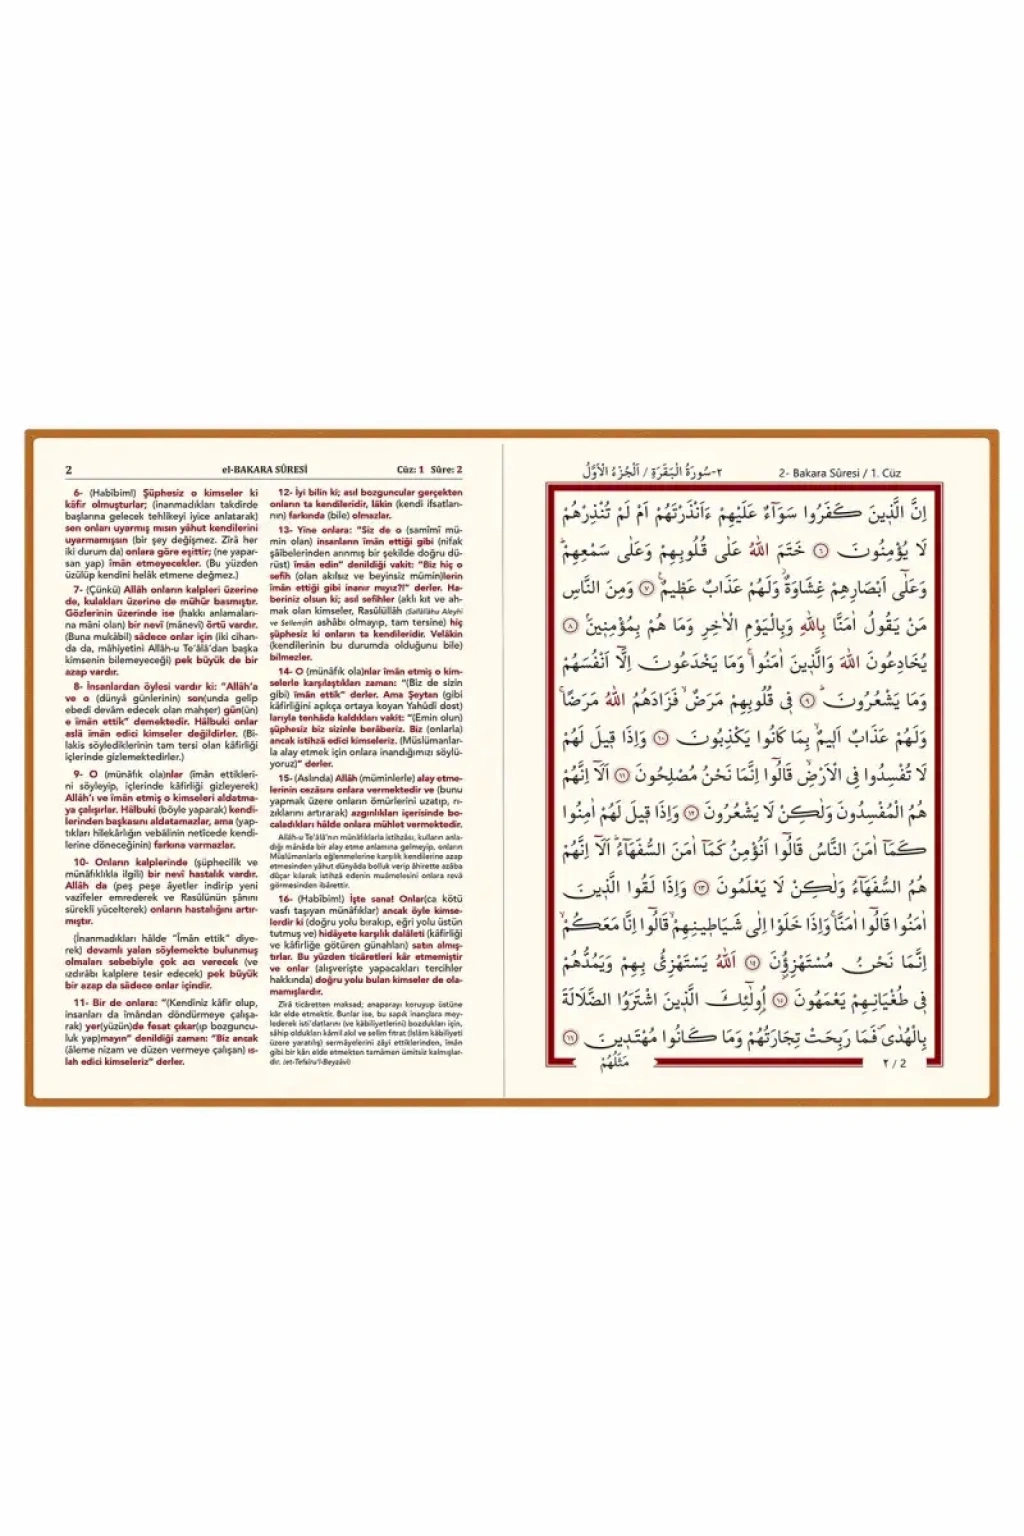 2 el-BAKARA SÛRESİ Cüz: 1 Sûre: 2
6- (Habîbim!) Şüphesiz o kimseler ki
kâfir olmuşturlar; (inanmadıkları takdirde
başlarına gelecek tehlikeyi iyice anlatarak)
sen onları uyarmış mısın yâhut kendilerini
uyarmamışsın (bir şey değişmez. Zîrâ her
iki durum da) onlara göre eşittir; (ne yapar-
san yap) îmân etmeyecekler. (Bu yüzden
üzülüp kendini helâk etmene değmez.)
7- (Çünkü) Allâh onların kalpleri üzerine
de, kulakları üzerine de mühür basmıştır.
Gözlerinin üzerinde ise (hakkı anlamaları-
na mâni olan) bir nevî (mânevî) örtü vardır.
(Buna mukâbil) sâdece onlar için (iki cihan-
da da, mâhiyetini Allâh-u Te'âlâ'dan başka
kimsenin bilemeyeceği) pek büyük de bir
azap vardır.
8- İnsanlardan öylesi vardır ki: "Allâh'a
ve o (dünyâ günlerinin) son(unda gelip
ebedî devâm edecek olan mahşer) gün(ün)
e îmân ettik" demektedir. Hâlbuki onlar
aslâ îmân edici kimseler değildirler. (Bi-
lakis söylediklerinin tam tersi olan kâfirliği
içlerinde gizlemektedirler.)
9- O (münâfık ola)nlar (îmân ettikleri-
ni söyleyip, içlerinde kâfirliği gizleyerek)
Allâh'ı ve îmân etmiş o kimseleri aldatma-
ya çalışırlar. Hâlbuki (böyle yaparak) kendi-
lerinden başkasını aldatamazlar, ama (yap-
tıkları hilekârlığın vebâlinin netîcede kendi-
lerine döneceğinin) farkına varmazlar.
10- Onların kalplerinde (şüphecilik ve
münâfıklıkla ilgili) bir nevî hastalık vardır.
Allâh da (peş peşe âyetler indirip yeni
vazîfeler emrederek ve Rasûlünün şânını
sürekli yücelterek) onların hastalığını artır-
mıştır.
(İnanmadıkları hâlde "Îmân ettik" diye-
rek) devamlı yalan söylemekte bulunmuş
olmaları sebebiyle çok acı verecek (ve
ızdırâbı kalplere tesir edecek) pek büyük
bir azap da sâdece onlar içindir.
11- Bir de onlara: "(Kendiniz kâfir olup,
insanları da îmândan döndürmeye çalışa-
rak) yer(yüzün)de fesat çıkar(ıp bozguncu-
luk yap)mayın" denildiği zaman: "Biz ancak
(âleme nizam ve düzen vermeye çalışan) ıs-
lah edici kimseleriz" derler.
12- İyi bilin ki; asıl bozguncular gerçekten
onların ta kendileridir, lâkin (kendi ifsatları-
nın) farkında (bile) olmazlar.
13- Yine onlara: "Siz de o (samîmî mü-
min olan) insanların îmân ettiği gibi (nifak
şâibelerinden arınmış bir şekilde doğru dü-
rüst) îmân edin" denildiği vakit: "Biz hiç o
sefih (olan akılsız ve beyinsiz mümin)lerin
îmân ettiği gibi inanır mıyız?!" derler. Ha-
beriniz olsun ki; asıl sefihler (aklı kıt ve ah-
mak olan kimseler, Rasûlüllâh (Sallâllâhu Aleyhi
ve Sellem)in ashâbı olmayıp, tam tersine) hiç
şüphesiz ki onların ta kendileridir. Velâkin
(kendilerinin bu durumda olduğunu bile)
bilmezler.
14- O (münâfık ola)nlar îmân etmiş o kim-
selerle karşılaştıkları zaman: "(Biz de sizin
gibi) îmân ettik" derler. Ama Şeytan (gibi
kâfirliğini açıkça ortaya koyan Yahûdî dost)
larıyla tenhâda kaldıkları vakit: "(Emin olun)
şüphesiz biz sizinle berâberiz. Biz (onlarla)
ancak istihzâ edici kimseleriz. (Müslümanlar-
la alay etmek için onlara inandığımızı söylü-
yoruz)" derler.
15- (Aslında) Allâh (müminlerle) alay etme-
lerinin cezâsını onlara vermektedir ve (bunu
yapmak üzere onların ömürlerini uzatıp, rı-
zıklarını artırarak) azgınlıkları içerisinde bo-
caladıkları hâlde onlara mühlet vermektedir.
Allâh-u Te'âlâ'nın münâfıklarla istihzâsı, kulların anla-
dığı mânâda bir alay etme anlamına gelmeyip, onların
Müslümanlarla eğlenmelerine karşılık kendilerine azap
etmesinden yâhut dünyâda bolluk verip âhirette azâba
düçar kılarak istihzâ edenin muâmelesini onlara revâ
görmesinden ibârettir.
16- (Habîbim!) İşte sana! Onlar(ca kötü
vasfı taşıyan münâfıklar) ancak öyle kimse-
lerdir ki (doğru yolu bırakıp, eğri yolu üstün
tutmuş ve) hidâyete karşılık dalâleti (kâfirliği
ve kâfirliğe götüren günahları) satın almış-
tırlar. Bu yüzden ticâretleri kâr etmemiştir
ve onlar (alışverişte yapacakları tercihler
hakkında) doğru yolu bulan kimseler de ola-
mamışlardır.
Zîrâ ticâretten maksad; anaparayı koruyup üstüne
kâr elde etmektir. Bunlar ise, bu sapık inançlara mey-
lederek isti'datlarını (ve kâbiliyetlerini) bozdukları için,
sâhip oldukları kâmil akıl ve selîm fıtrat (İslâm kâbiliyeti
üzere yaratılış) sermâyelerini zâyi ettiklerinden, îmân
gibi bir kârı elde etmekten tamâmen ümitsiz kalmışlar-
dır. (et-Tefsîru'l-Beyzâvî)
٢-سُورَةُ الْبَقَرَةِ / اَلْجُزْءُ الْاَوَّلُ 2- Bakara Sûresi / 1. Cüz
اِنَّ الَّذٖينَ كَفَرُوا سَوَٓاءٌ عَلَيْهِمْ ءَاَنْذَرْتَهُمْ اَمْ لَمْ تُنْذِرْهُمْ
لَا يُؤْمِنُونَ ﴿٦﴾ خَتَمَ اللّٰهُ عَلٰى قُلُوبِهِمْ وَعَلٰى سَمْعِهِمْؕ
وَعَلٰٓى اَبْصَارِهِمْ غِشَاوَةٌؗ وَلَهُمْ عَذَابٌ عَظٖيمٌࣖ ﴿٧﴾ وَمِنَ النَّاسِ
مَنْ يَقُولُ اٰمَنَّا بِاللّٰهِ وَبِالْيَوْمِ الْاٰخِرِ وَمَا هُمْ بِمُؤْمِنٖينَۘ ﴿٨﴾
يُخَادِعُونَ اللّٰهَ وَالَّذٖينَ اٰمَنُواۚ وَمَا يَخْدَعُونَ اِلَّٓا اَنْفُسَهُمْ
وَمَا يَشْعُرُونَؕ ﴿٩﴾ فٖي قُلُوبِهِمْ مَرَضٌۙ فَزَادَهُمُ اللّٰهُ مَرَضًاۚ
وَلَهُمْ عَذَابٌ اَلٖيمٌۙ بِمَا كَانُوا يَكْذِبُونَ ﴿١٠﴾ وَاِذَا قٖيلَ لَهُمْ
لَا تُفْسِدُوا فِي الْاَرْضِۙ قَالُٓوا اِنَّمَا نَحْنُ مُصْلِحُونَ ﴿١١﴾ اَلَٓا اِنَّهُمْ
هُمُ الْمُفْسِدُونَ وَلٰكِنْ لَا يَشْعُرُونَ ﴿١٢﴾ وَاِذَا قٖيلَ لَهُمْ اٰمِنُوا
كَمَٓا اٰمَنَ النَّاسُ قَالُٓوا اَنُؤْمِنُ كَمَٓا اٰمَنَ السُّفَهَٓاءُؕ اَلَٓا اِنَّهُمْ
هُمُ السُّفَهَٓاءُ وَلٰكِنْ لَا يَعْلَمُونَ ﴿١٣﴾ وَاِذَا لَقُوا الَّذٖينَ
اٰمَنُوا قَالُٓوا اٰمَنَّاۚ وَاِذَا خَلَوْا اِلٰى شَيَاطٖينِهِمْۙ قَالُٓوا اِنَّا مَعَكُمْۙ
اِنَّمَا نَحْنُ مُسْتَهْزِؤُ۫نَ ﴿١٤﴾ اَللّٰهُ يَسْتَهْزِئُ بِهِمْ وَيَمُدُّهُمْ
فٖي طُغْيَانِهِمْ يَعْمَهُونَ ﴿١٥﴾ اُو۬لٰٓئِكَ الَّذٖينَ اشْتَرَوُا الضَّلَالَةَ
بِالْهُدٰىࣕ فَمَا رَبِحَتْ تِجَارَتُهُمْ وَمَا كَانُوا مُهْتَدٖينَ ﴿١٦﴾
مَثَلُهُمْ ٢ / 2